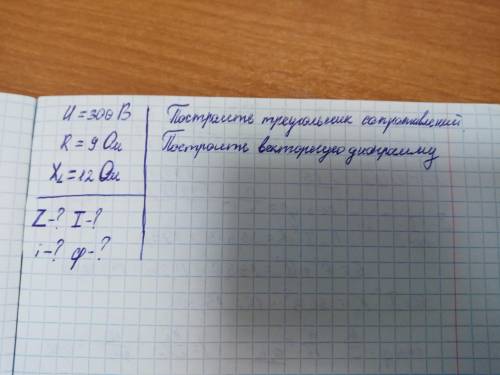 U = 300 В
R = 9 Ом
XL = 12 Ом
Z - ? I - ?
i - ? φ - ?
Построить треугольник сопротивлений
Построить векторную диаграмму